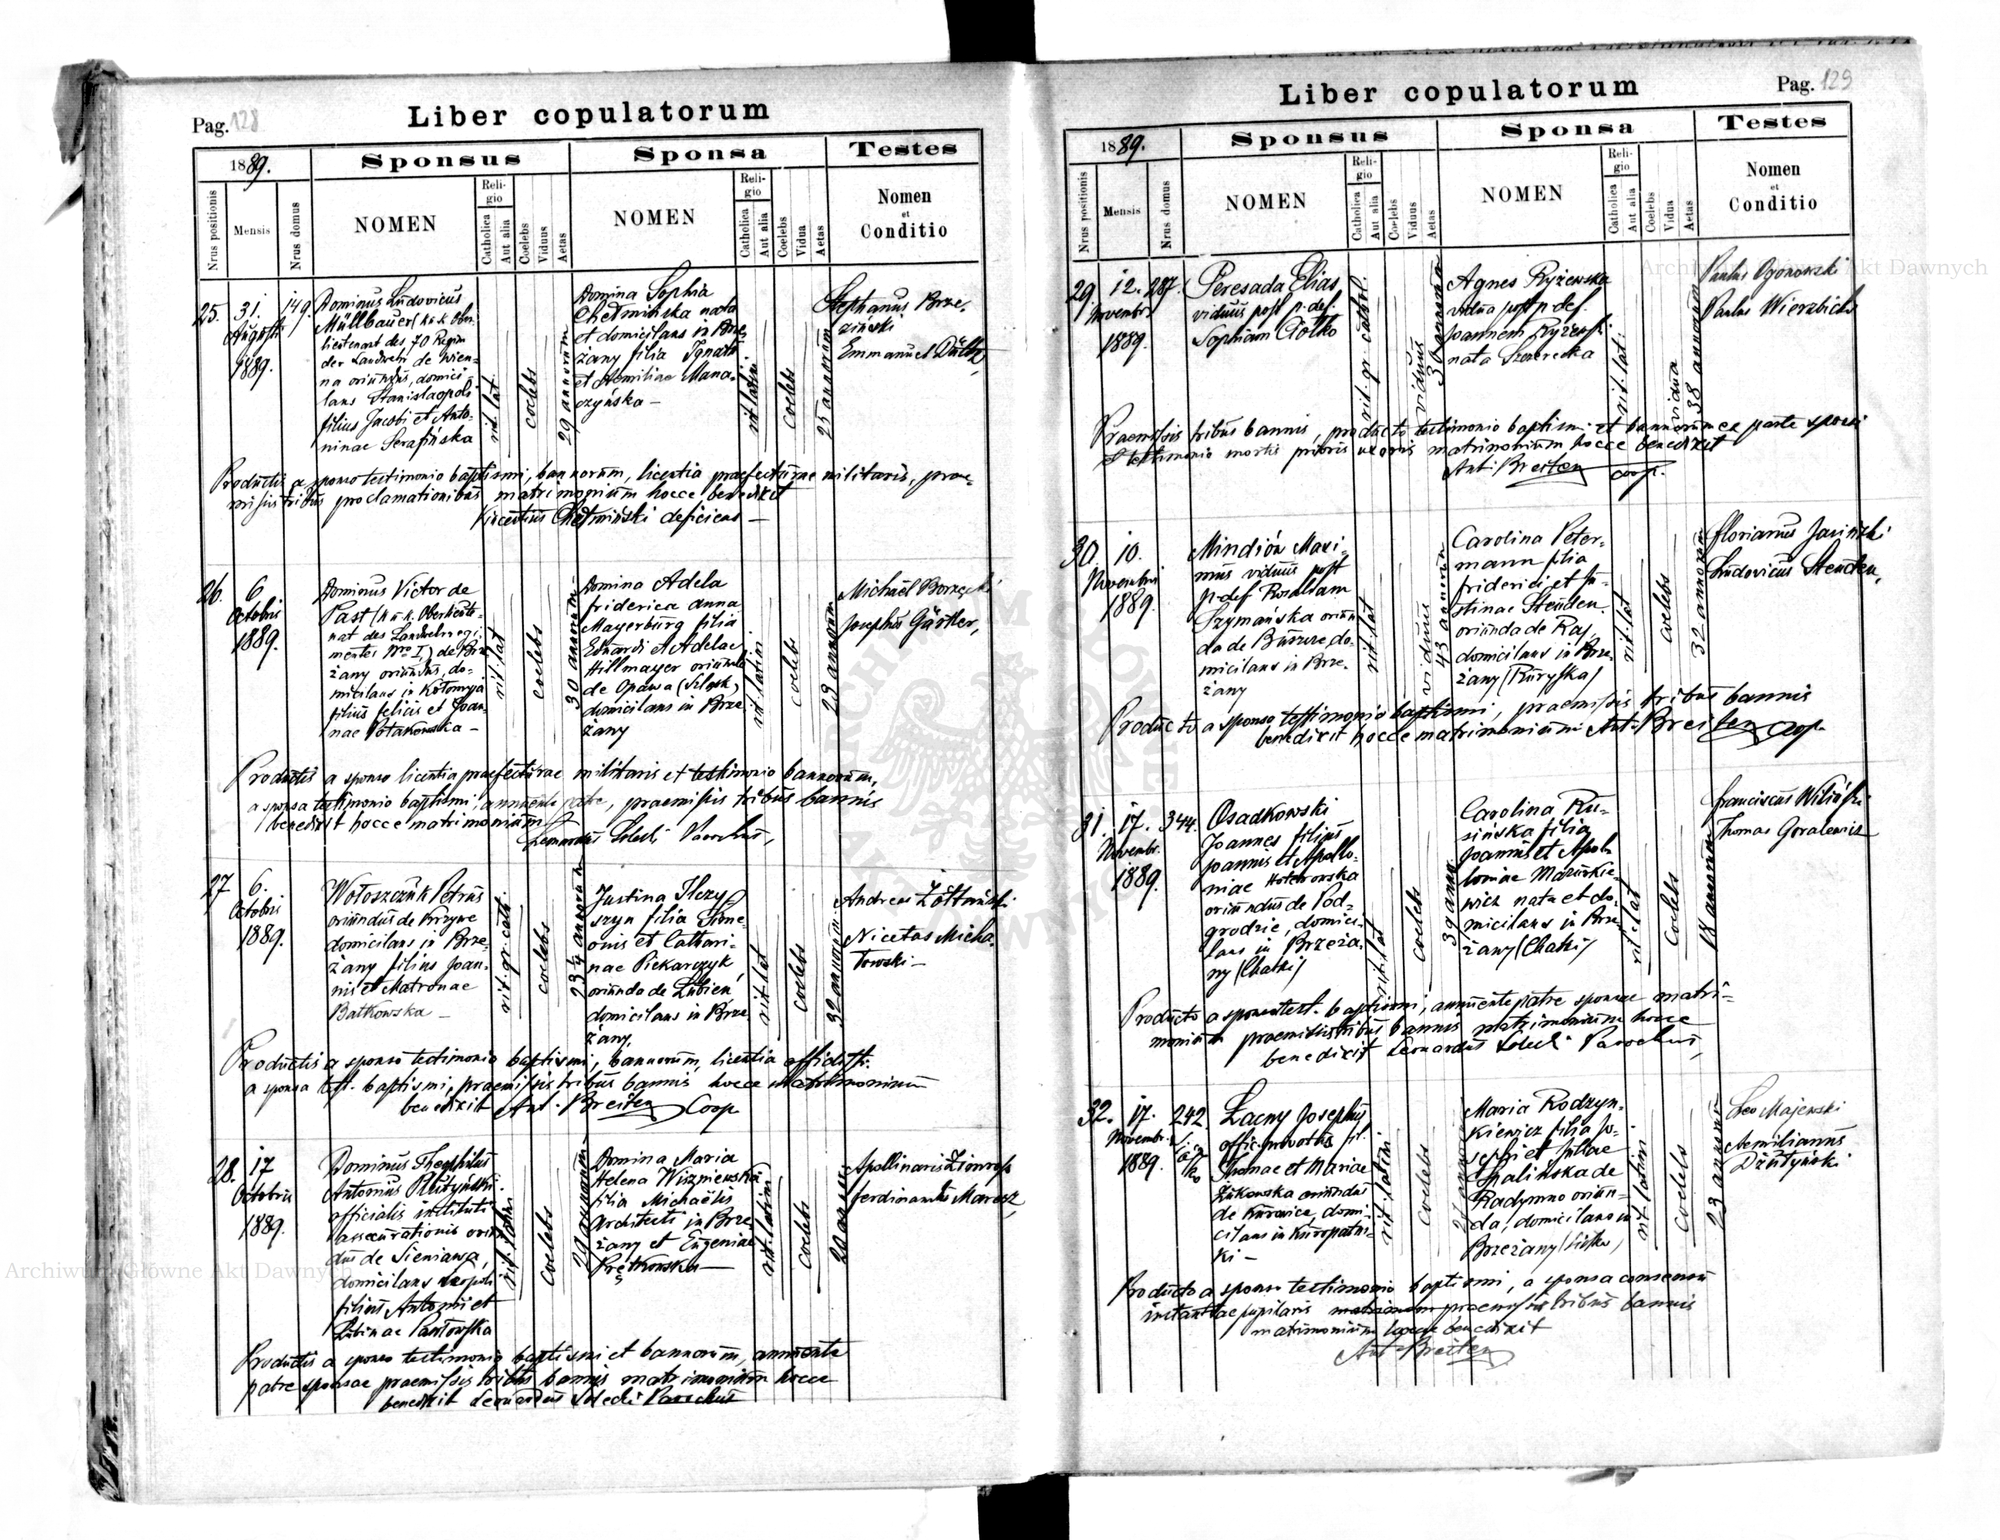 Liber copulatorum
Pag. 128
1889.
Sponsus
Sponsa
Testes
Nrus positionis
Mensis
Nrus domus
NOMEN
Religio
Catholica
Aut alia
Coelebs
Viduus
Aetas
NOMEN
Religio
Catholica
Aut alia
Coelebs
Vidua
Aetas
Nomen
et
Conditio
25.
31.
Augusti
1889.
149.
Dominus Ludovicus
Müllbauer (k. k. Ober-
lieutenant des 70 Regim
der Landwehr de Wien-
na oriundus, domici-
lans Stanislaopoli
filius Jacobi et Anto-
ninae Serafińska
rit. lat.
coelebs
29 annorum
Domina Sophia
Chełmińska nata
et domicilans in Brze
żany filia Ignatii
et Aemiliae Mana-
czyńska —
rit. latini
coelebs
25 annorum
Stephanus Brze-
ziński
Emmanuel
Productis a sponso testimonio baptismi, bannorum, licentia praefecturae militaris, prae-
missis tribus proclamationibus matrimonium hocce benedixit
Vincentius Chełmiński deficiens —
26.
6
Octobris
1889.
Dominus Victor de
Past (k. u. k. Oberlieute-
nat des Landwehrregi-
mentes Nro I.) de Brze
żany oriundus, do-
micilans in Kołomyja
filius Felicis et Joan-
nae Potakowska —
rit. lat
coelebs
30 annorum
Domina Adela
Friderica Anna
Mayerburg filia
Eduardi et Adelae
Hillmayer oriunda
de Opawa (Szląsk)
domicilans in Brze
żany
rit. latini
coelebs
29 annorum
Michaël Borzęcki
Josephus Gärtler,
Productis a sponso licentia praefecturae militaris et testimonio bannorum,
a sponsa testimonio baptismi, annuente patre, praemissis tribus bannis
benedixit hocce matrimonium
Leonardus Solecki Parochus,
27
6.
Octobris
1889.
Wołoszczuk Petrus
oriundus de Krzywe
domicilans in Brze-
żany filius Joan-
nis et Matronae
Bałkowska —
rit. gr. cath.
coelebs
23½ annorum
Justina Tłezy
szyn filia Sime-
onis et Cathari-
nae Piekarczyk
oriunda de Łubień
domicilans in Brze
żany.
rit. lat
coelebs
32 annorum
Andreas Żółtański
Nicetas Micha-
łowski —
Productis a sponso testimonio baptismi, bannorum, licentia officii
a sponsa test. baptismi, praemissis tribus bannis hocce matrimonium
benedixit Ant. Breiten Coop.
28.
17
Octobris
1889.
Dominus Theophilus
Antonius Rutyński
officialis instituti
assecurationis oriun
dus de Sieniawa,
domicilans Leopoli
filius Antonii et
Sabinae Pawłowska
rit. latini
coelebs
29 annorum
Domina Maria
Helena Wiszniewska
filia Michaëlis
Architecti in Brze
żany et Eugeniae
Prętkowska —
rit. latini
coelebs
20 annor
Apollinaris
Ferdinandus Maresz,
Productis a sponso testimonio baptismi et bannorum, annuente
patre sponsae praemissis tribus bannis matrimonium hocce
benedixit Leonardus Solecki Parochus
Liber copulatorum
Pag. 129
1889.
Sponsus
Sponsa
Testes
Nrus positionis
Mensis
Nrus domus
NOMEN
Religio
Catholica
Aut alia
Coelebs
Viduus
Aetas
NOMEN
Religio
Catholica
Aut alia
Coelebs
Vidua
Aetas
Nomen
et
Conditio
29.
12.
Novembris
1889.
287.
Peresada Elias
viduus post p. def.
Sophiam Ciołko
rit. gr. cathol.
viduus
annorum
Agnes Ryżewska
vidua post p. def.
Joannem Ryżewski
nata Szczerecka
rit. lat.
vidua
38 annorum
Paulus Ogonowski
Paulus Wierzbicki
Praemissis tribus bannis, producto testimonio baptismi et bannorum ex parte sponsi
et testimonio mortis prioris uxoris matrimonium hocce benedixit
Ant. Breiten coop.
30.
10.
Novembris
1889.
Mindión Maxi-
mus viduus post
p. def. Rosaliam
Szymańska oriun
da de Buszcze do-
micilans in Brze-
żany
rit. lat
viduus
43 annorum
Carolina Peter-
mann filia
Friderici et Ju-
stinae Steuden.
oriunda de Raj,
domicilans in Brze-
żany (Ruryska)
rit. lat
coelebs
32 annorum
Florianus Jasiński
Ludovicus Steuden,
Producto a sponso testimonio baptismi, praemissis tribus bannis
benedixit hocce matrimonium Ant. Breiten coop.
31.
17.
Novembr.
1889.
344.
Osadkowski
Joannes filius
Joannis et Apollo-
niae Hołenowska
oriundus de Pod-
grodzie, domici-
lans in Brzeża-
ny (Chatki)
rit. lat
coelebs
39 anno
Carolina Ru-
sińska filia
Joannis et Apol-
loniae Mazurkie-
wicz nata et do-
micilans in Brze-
żany (Chatki)
rit. lat
Coelebs
18 annorum
Franciscus Wiliński
Thomas Goralewicz
Producto a sponso test. baptismi, annuente patre sponsae matri-
monium praemissis tribus bannis matrimonium hocce
benedixit Leonardus Solecki Parochus,
32.
17.
Novembr.
1889.
242.
Łacny Josephus
offic. fil.
Thomae et Mariae
Żukowska oriundus
de Kurowice, domi-
cilans in Kuropatni-
ki —
rit. latini
coelebs
27 annorum
Maria Rodzyn-
kiewicz filia Jo-
sephi et Juliae
Skalińska de
Radymno oriun-
da, domicilans in
Brzeżany
rit. latini
Coelebs
23 annorum
Leo Majewski
Aemilianus
Dżułyński
Producto a sponso testimonio baptismi, a sponsa consensu
instantiae pupilaris praemissis tribus bannis
matrimonium hocce benedixit
Ant Breiten
Archiwum Główne Akt Dawnych
Archiwum Główne Akt Dawnych
ARCHIWUM GŁÓWNE AKT DAWNYCH